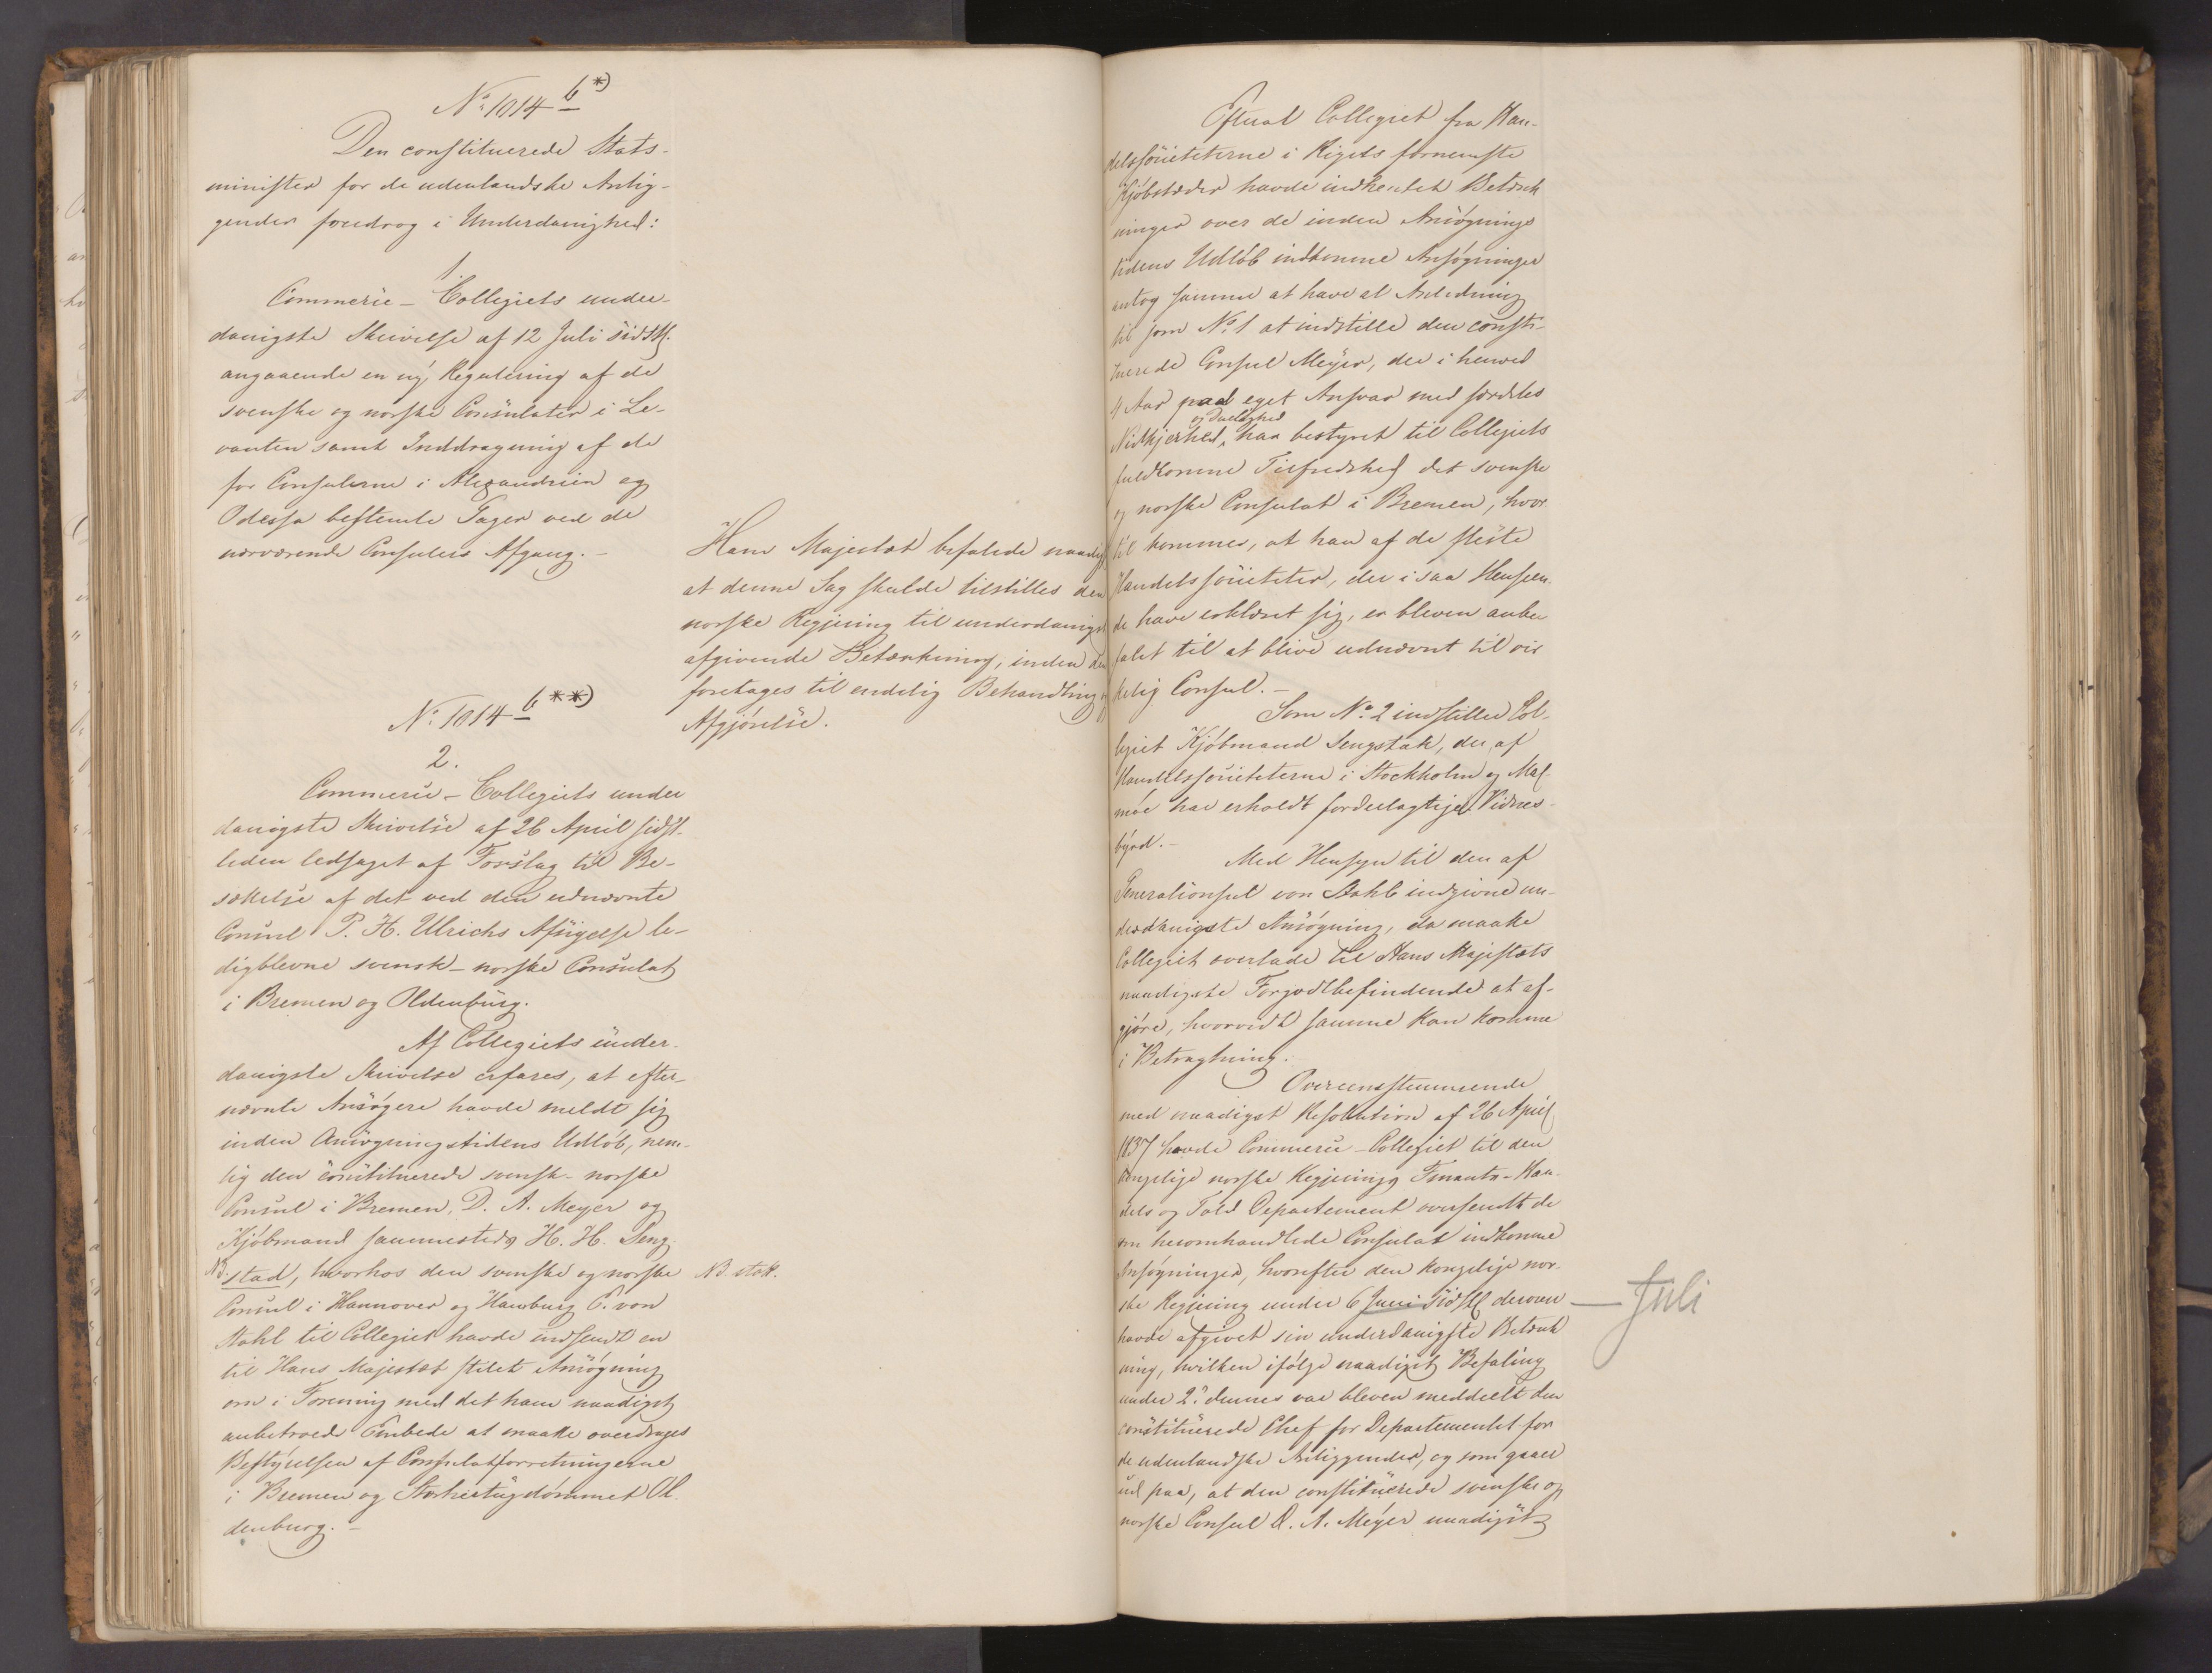 No. 1014 b *)
Den constituerede Stats-
minister for de udenlandske Anlig-
gender foredrog i Underdanighed:
1.
Commerce-Collegiets under-
danigste Skrivelse af 12 Juli sidstl.
angaaende en ny Regulering af de
svenske og norske Consulater i Le-
vanten samt Inddragning af de
for Consulerne i Alexandrien og
Odessa bestemte Gager ved de
nærværende Consulers Afgang.-
Hans Majestæt befalede naadigst
at denne Sag skulde tilstilles den
norske Regjering til underdanigst
afgivende Betænkning, inden den
foretages til endelig Behandling og
Afgjörelse.
No. 1014 b **)
2.
Commerce-Collegiets under
danigste Skrivelse af 26 April sidst-
leden ledsaget af Forslag til Be-
sættelse af det ved den udnævnte
Consul P. H. Ulrichs Afsigelse le-
digblevne svensk-norske Consulat
i Bremen og Oldenburg.
Af Collegiets under-
danigste Skrivelse erfares, at efter-
nævnte Ansögere havde meldt sig
inden Ansögningstidens Udlöb, nem-
lig den constituerede svensk-norske
Consul i Bremen, D. A. Meyer og
Kjöbmand sammesteds H. H. Seng-
NB. stad, hvorhos den svenske og norske
NB. stak.
Consul i Hannover og Hamburg C. von
Stahl til Collegiet havde indsendt en
til Hans Majestæt stilet Ansögning
om i Forening med det ham naadigst
anbetroede Embede at maatte overdrages
Bestyrelsen af Consulatforretningerne
i Bremen og Storhertugdömmet Ol-
denburg.-
Efterat Collegiet fra Han-
delssocieteterne i Rigets fornemste
Kjöbstæder havde indhentet Betænk
ninger over de inden Ansögnings
tidens Udlöb indkomne Ansögninger
antog samme at have al Anledning
til som No. 1 at indstille den consti-
tuerede Consul Meyer, der i henved
4 Aar paa eget Ansvar med særdeles
og Duelighed
Nidkjerhed, har bestyret til Collegiets
fuldkomne Tilfredshed det svenske
og norske Consulat i Bremen, hvor
til kommer, at han af de fleste
Handelssocieteter, der i saa Henseen
de have erklæret sig, er bleven anbe
falet til at blive udnævnt til vir
kelig Consul.-
Som No. 2 indstiller Col-
legiet Kjöbmand Sengstak, der af
Handelssocieteterne i Stockholm og Mal-
möe har erholdt fordeelagtige Vidnes-
byrd.-
Med Hensyn til den af
Generalconsul von Stahl indgivne un-
derdanigste Ansögning, da maatte
Collegiet overlade til Hans Majestæts
naadigste Forgodtbefindende at af-
gjöre, hvorvidt samme kan komme
i Betragtning.
Overeensstemmende
med naadigst Resolution af 26 April
1837 havde Commerce-Collegiet til den
kongelige norske Regjerings Finants-Han-
dels og Told Departement oversendt de
om heromhandlede Consulat indkomne
Ansögninger, hvorefter den kongelige nor-
ske Regjering under 6 Juni sidstl. derover
Juli
havde afgivet sin underdanigste Betænk
ning, hvilken ifölge naadigst Befaling
under 2. dennes var bleven meddeelt den
constituerede Chef for Departementet for
de udenlandske Anliggender, og som gaaer
ud paa, at den constituerede svenske og
norske Consul D. A. Meyer naadigst